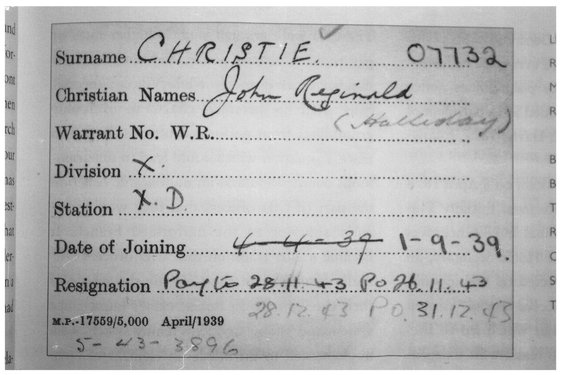 Surname CHRISTIE. 07732
Christian Names John Reginald
(Halliday)
Warrant No. W.R.
Division X.
Station X. D.
Date of Joining 4-4-39 1-9-39.
Resignation Pay to 28.11.43 P.O. 26.11.43
28.12.43 P.O. 31.12.43
M.P.-17559/5,000 April/1939
5-43-3896